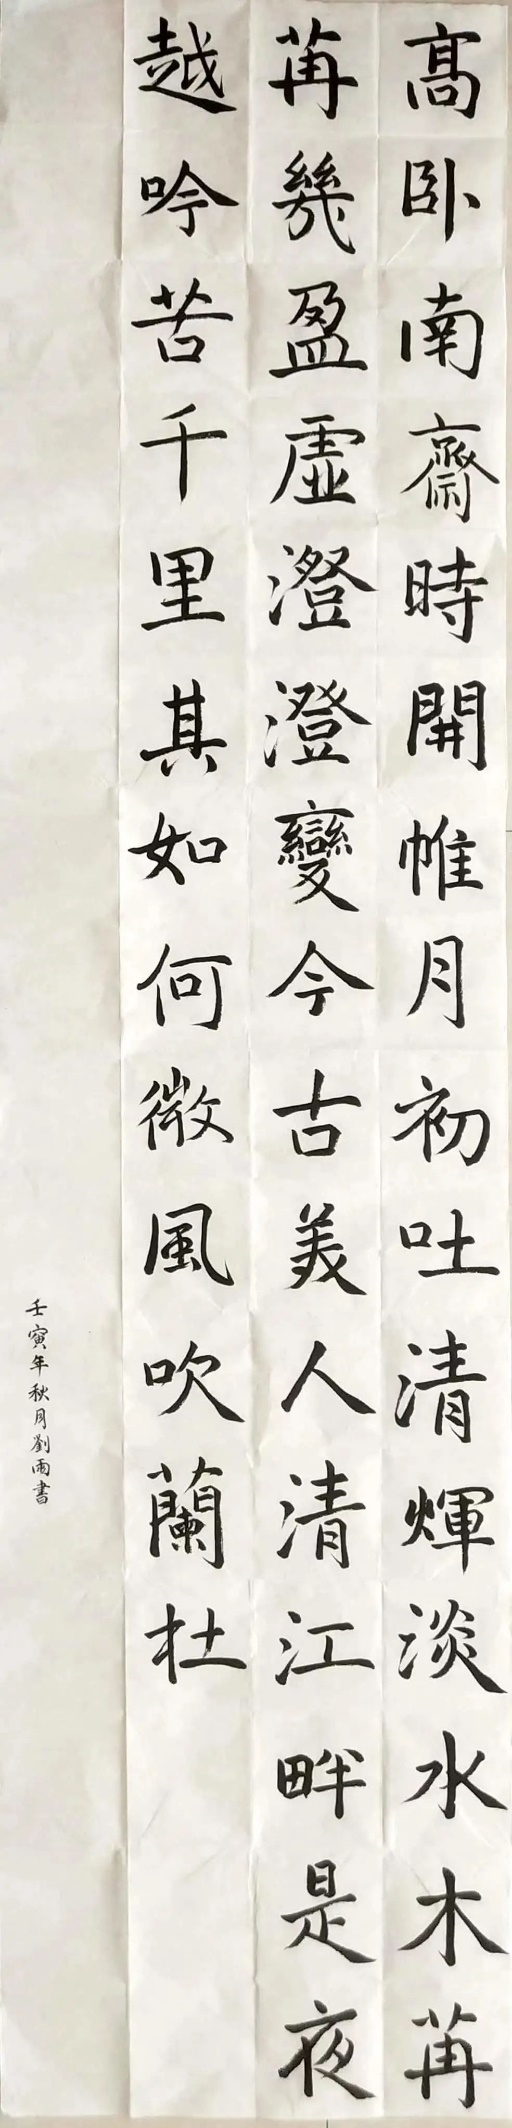 高臥南齋時開帷月初吐清輝淡水木苒
苒幾盈虛澄澄變今古美人清江畔是夜
越吟苦千里其如何微風吹蘭杜
壬寅年秋月劉雨書